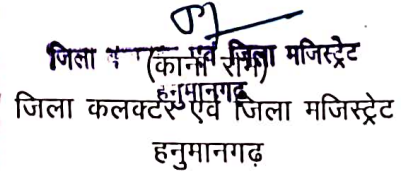 जिला एवं जिला मजिस्ट्रेट
(काना राम)
हनुमानगढ़
जिला कलक्टर एवं जिला मजिस्ट्रेट
हनुमानगढ़